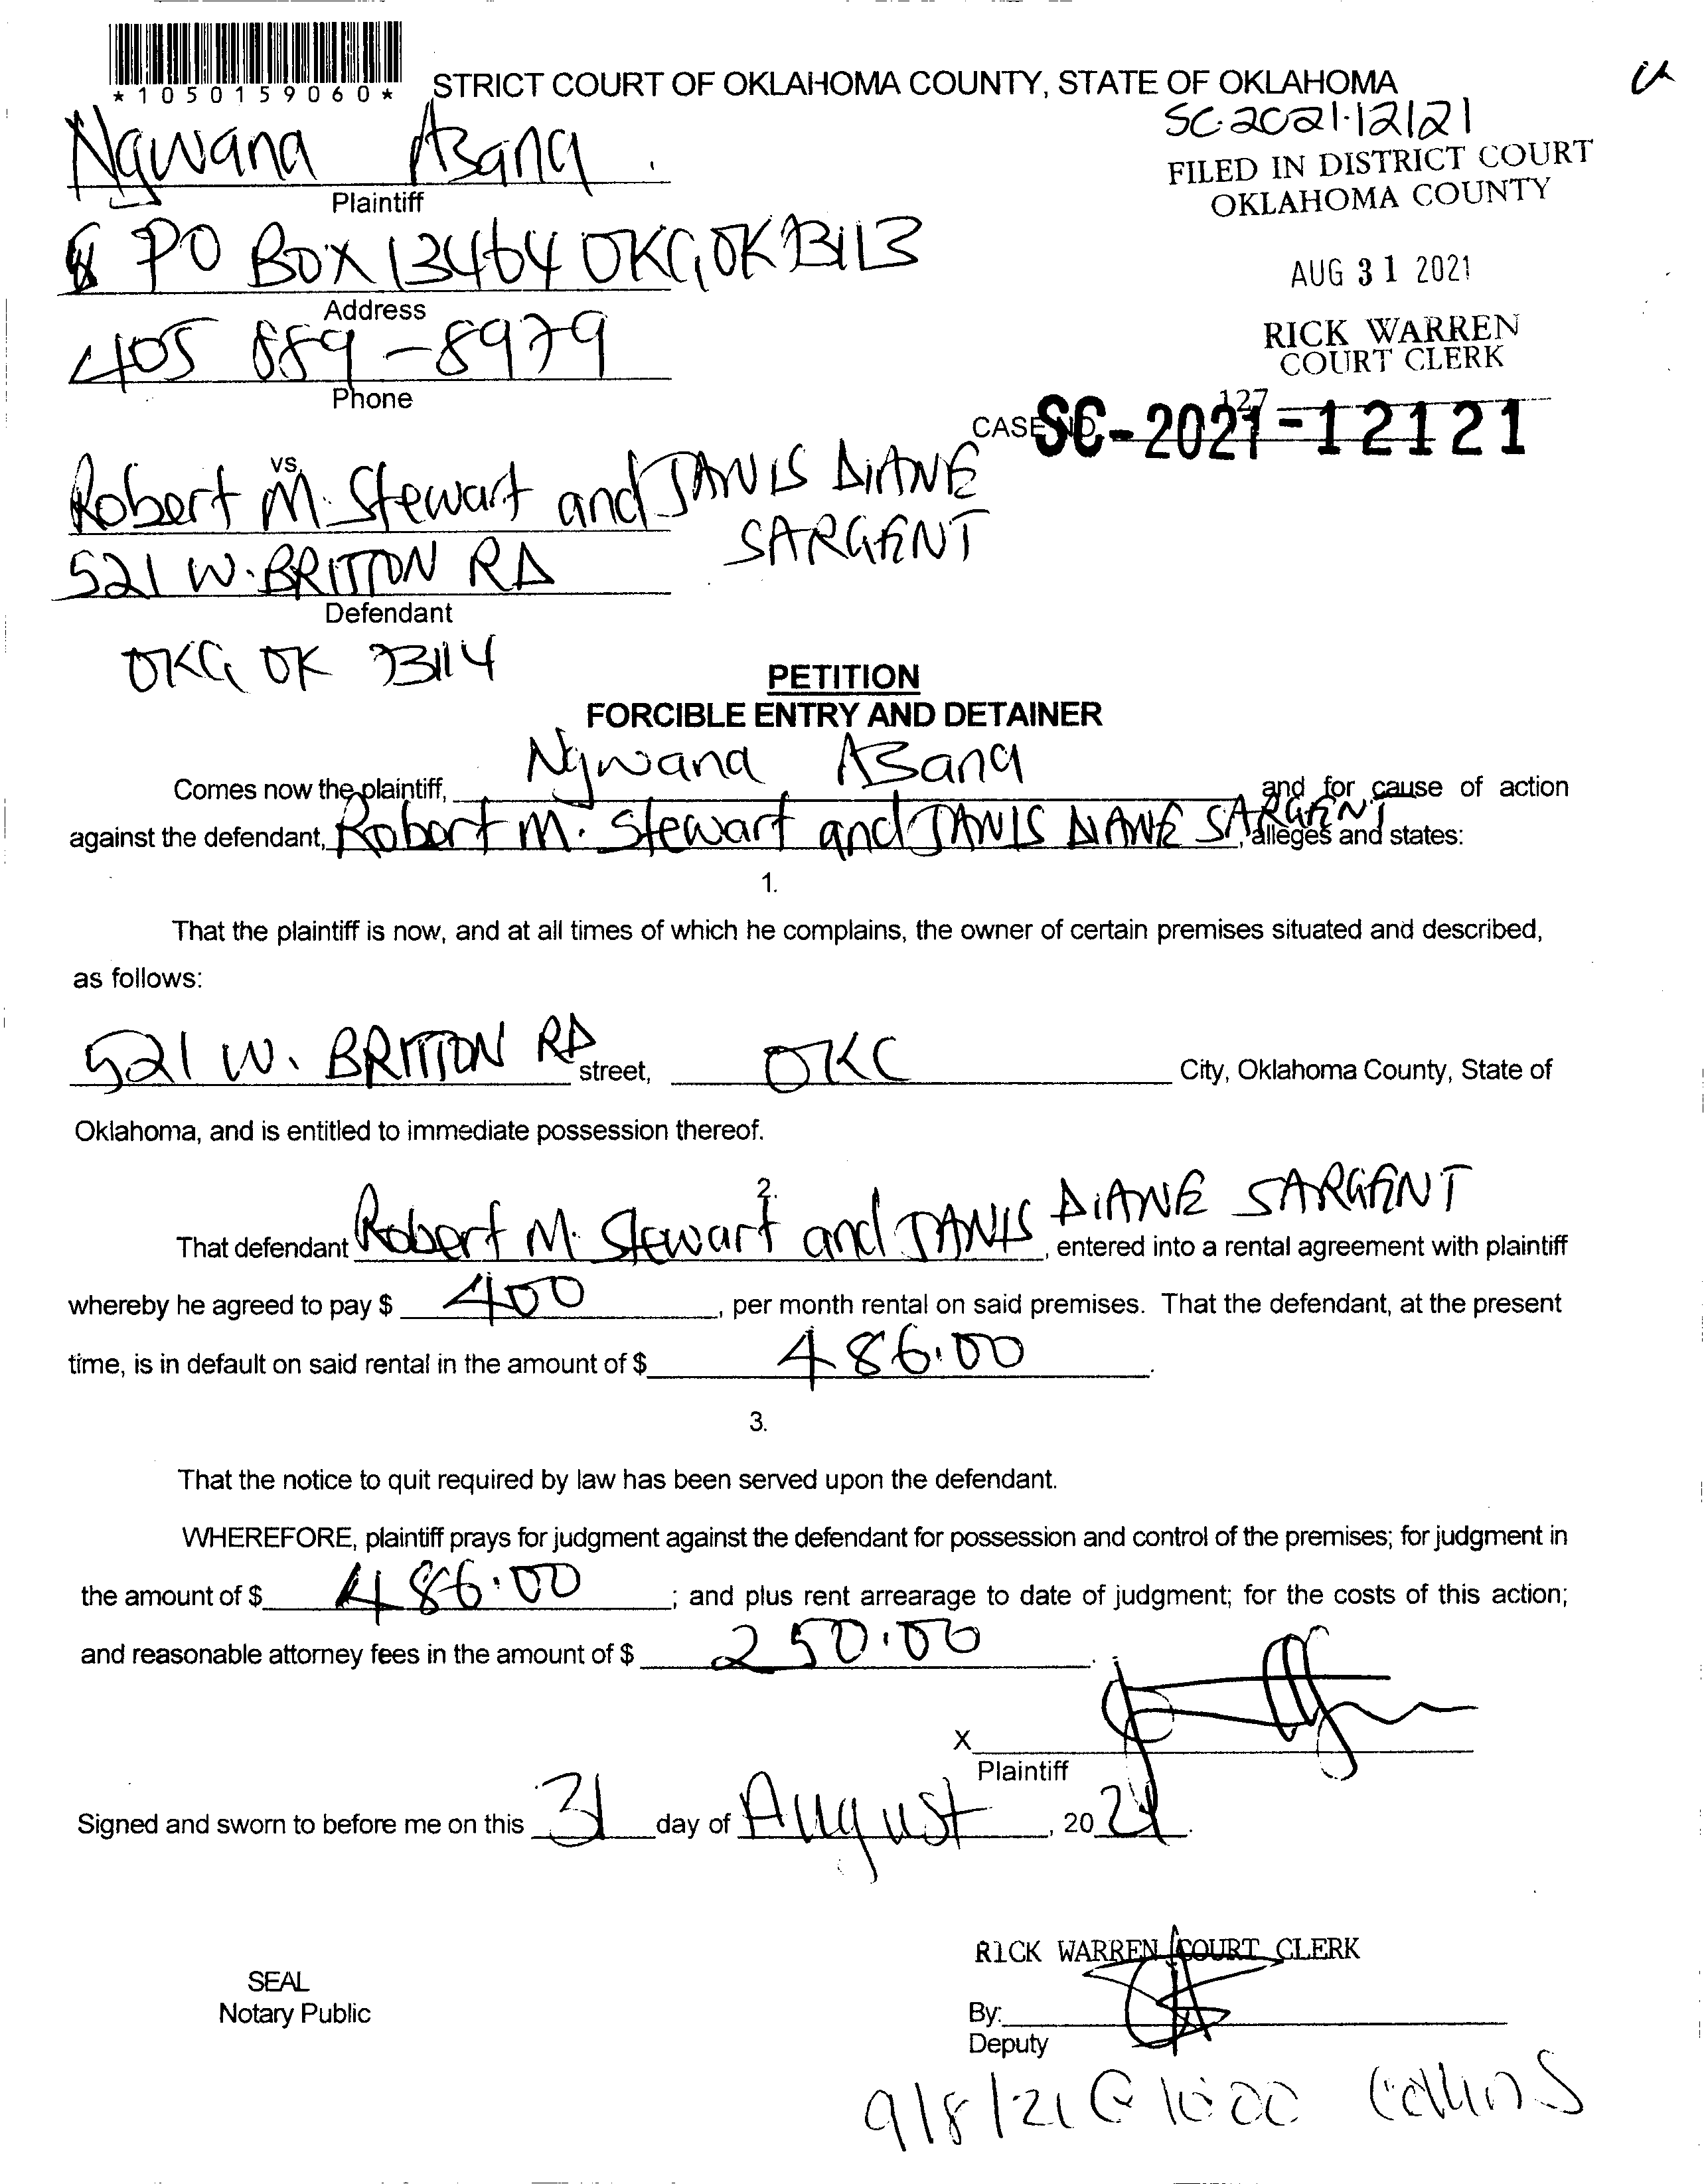 *1050159060*
STRICT COURT OF OKLAHOMA COUNTY, STATE OF OKLAHOMA
SC-2021-12121
FILED IN DISTRICT COURT
OKLAHOMA COUNTY
AUG 31 2021
RICK WARREN
COURT CLERK
127
Ngwana Asang
Plaintiff
PO BOX 13464 OKC, OK 73113
Address
405 889-8979
Phone
CASE NO. SC-2021-12121
vs.
Robert M. Stewart and JANIS DIANE
SARGENT
521 W. BRITTON RD
Defendant
OKC, OK 73114
PETITION
FORCIBLE ENTRY AND DETAINER
Comes now the plaintiff, Ngwana Asang and for cause of action
against the defendant, Robert M. Stewart and JANIS DIANE SARGENT, alleges and states:
1.
That the plaintiff is now, and at all times of which he complains, the owner of certain premises situated and described,
as follows:
521 W. BRITTON RD street, OKC City, Oklahoma County, State of
Oklahoma, and is entitled to immediate possession thereof.
2.
That defendant Robert M. Stewart and JANIS DIANE SARGENT, entered into a rental agreement with plaintiff
whereby he agreed to pay $ 400, per month rental on said premises. That the defendant, at the present
time, is in default on said rental in the amount of $ 486.00.
3.
That the notice to quit required by law has been served upon the defendant.
WHEREFORE, plaintiff prays for judgment against the defendant for possession and control of the premises; for judgment in
the amount of $ 486.00; and plus rent arrearage to date of judgment; for the costs of this action;
and reasonable attorney fees in the amount of $ 250.00.
X
Plaintiff
Signed and sworn to before me on this 31 day of August, 2021.
RICK WARREN, COURT CLERK
SEAL
Notary Public
By:
Deputy
9/8/21 @ 10:00 Collins